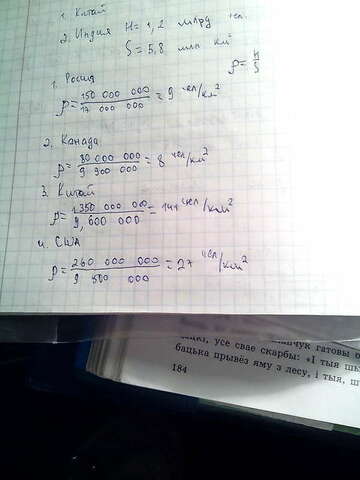 1. Китай
2. Индия Н = 1,2 млрд чел.
S = 5,8 млн км²
ρ = Н/S
1. Россия
ρ = 150 000 000 / 17 000 000 = 9 чел/км²
2. Канада
ρ = 80 000 000 / 9 900 000 = 8 чел/км²
3. Китай
ρ = 1350 000 000 / 9,600 000 = 141 чел/км²
4. США
ρ = 260 000 000 / 9 500 000 = 27 чел/км²
усе свае скарбы: «І тыя
гатовы
бацька прывёз яму з лесу, і тыя, ш
184